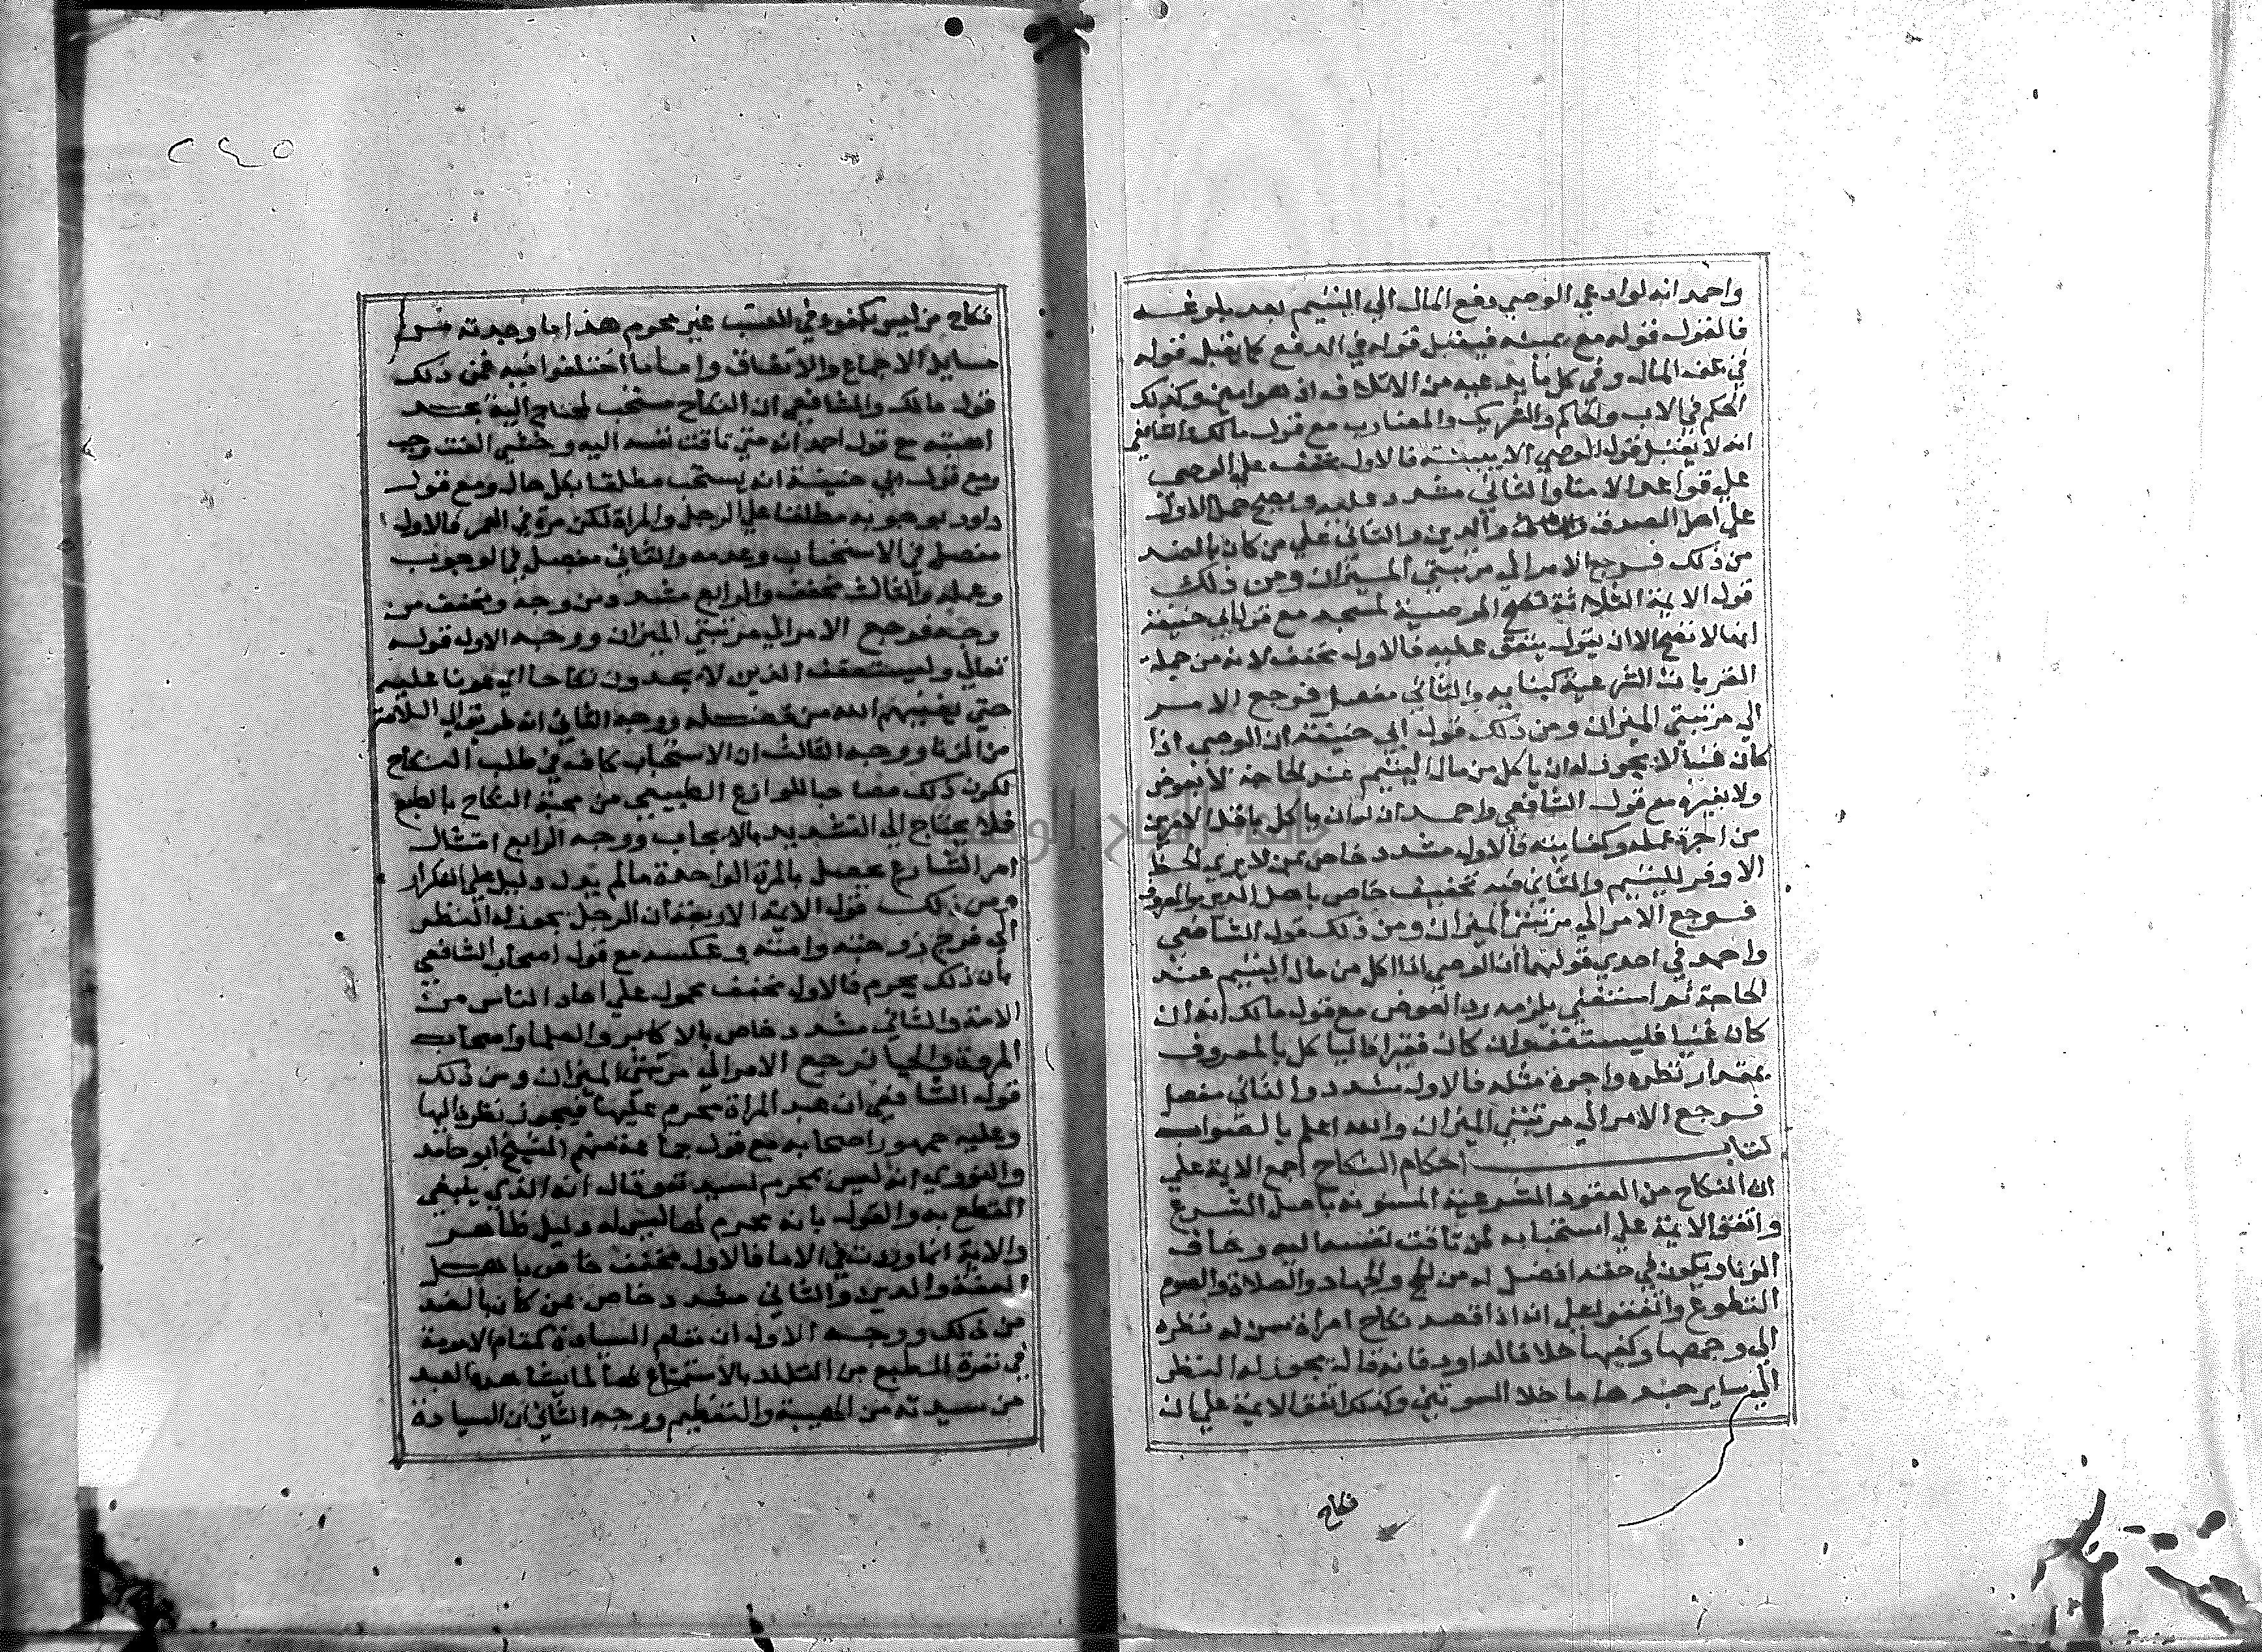 واحمد انه لو ادعي الوصي دفع المال الي اليتيم بعد بلوغه
فالقول قوله مع يمينه فيقبل قوله في الدفع كما يقبل قوله
في تلف المال وفي كل ما يدعيه من الاتلاف اذ هو امين وكذلك
الحكم في الاب والحاكم والشريك والمضارب مع قول مالك والشافعي
انه لا يقبل قول الوصي الا ببينة فالاول مخفف علي الوصي
علي قواعد الامنا والثاني مشدد عليه ويصح حمل الاول
علي اهل الصدق والدين والثاني علي من كان بالضد
من ذلك فرجع الامر الي مرتبتي الميزان ومن ذلك
قول الايمة الثلاثة تصح الوصية لمسجد مع قول ابي حنيفة
انها لا تصح الا ان يقول ينفق عليه فالاول مخفف لانه من جملة
القربات الشرعية كبنايه والثاني مفصل فرجع الامر
الي مرتبتي الميزان ومن ذلك قول ابي حنيفة ان الوصي اذا
كان غنيا لا يجوز له ان ياكل من مال اليتيم عند الحاجة لا بعوض
ولا بغيره مع قول الشافعي واحمد ان له ان ياكل باقل الامرين
من اجرة عمله وكفايته فالاول مشدد خاص بمن لا يري الحظ
الاوفر لليتيم والثاني فيه تخفيف خاص باهل الدين والمعروف
فرجع الامر الي مرتبتي الميزان ومن ذلك قول الشافعي
واحمد في احدي قوليهما ان الوصي اذا اكل من مال اليتيم عند
الحاجة ثم استغني يلزمه رد العوض مع قول مالك انه ان
كان غنيا فليستعفف وان كان فقيرا فلياكل بالمعروف
بمقدار نظره واجرة مثله فالاول مشدد والثاني مفصل
فرجع الامر الي مرتبتي الميزان والله اعلم بالصواب
كتاب احكام النكاح اجمع الايمة علي
ان النكاح من العقود الشرعية المسنونة باصل الشرع
واتفق الايمة علي استحبابه لمن تاقت نفسه اليه وخاف
الزنا ويكون في حقه افضل له من الحج والجهاد والصلاة والصوم
التطوع واتفقوا علي انه اذا قصد نكاح امراة سن له نظره
الي وجهها وكفيها خلافا لداود فانه قال يجوز له النظر
الي ساير جسدها ما خلا السوتين وكذلك اتفق الايمة علي ان
نكاح
٢٤٥
نكاح من ليس بكفوء في النسب غير محرم هذا ما وجدته من
مسايل الاجماع والاتفاق واما ما اختلفوا فيه فمن ذلك
قول مالك والشافعي ان النكاح مستحب لمحتاج اليه يجد
اهبته مع قول احمد انه متي تاقت نفسه اليه وخشي العنت وجب
ومع قول ابي حنيفة انه يستحب مطلقا بكل حال ومع قول
داود بوجوبه مطلقا علي الرجل والمراة لكن مرة في العمر فالاول
مفصل في الاستحباب وعدمه والثاني مفصل في الوجوب
وعدمه والثالث مخفف والرابع مشدد من وجه ومخفف من
وجه فرجع الامر الي مرتبتي الميزان ووجه الاول قوله
تعالي وليستعفف الذين لا يجدون نكاحا اي عونا عليه
حتي يغنيهم الله من فضله ووجه الثاني انه طريق الي السلامة
من الزنا ووجه الثالث ان الاستحباب كاف في طلب النكاح
لكون ذلك مصاحبا للوازع الطبيعي من محبة النكاح بالطبع
فلا يحتاج الي التشديد بالايجاب ووجه الرابع امتثال
امر الشارع يحصل بالمرة الواحدة ما لم يدل دليل علي التكرار
ومن ذلك قول الايمة الاربعة ان الرجل يجوز له النظر
الي فرج زوجته وامته وعكسه مع قول اصحاب الشافعي
بان ذلك يحرم فالاول مخفف محمول علي احاد الناس من
الامة والثاني مشدد خاص بالاكابر والعلما واصحاب
المروة والحيا فرجع الامر الي مرتبتي الميزان ومن ذلك
قول الشافعي ان عبد المراة محرم عليها فيجوز نظره اليها
وعليه جمهور اصحابه مع قول جماعة منهم الشيخ ابو حامد
والنووي انه ليس بمحرم لسيدته وقال انه الذي ينبغي
القطع به والقول بانه محرم لها ليس له دليل ظاهر
والاية انما وردت في الاما فالاول مخفف خاص باهل
العفة والدين والثاني مشدد خاص بمن كان بالضد
من ذلك ووجه الاول ان مقام السيادة كمقام الامومة
في نفرة الطبع من التلذذ بالاستمتاع بها لما يشاهده العبد
من سيدته من الهيبة والتعظيم ووجه الثاني ان السيادة